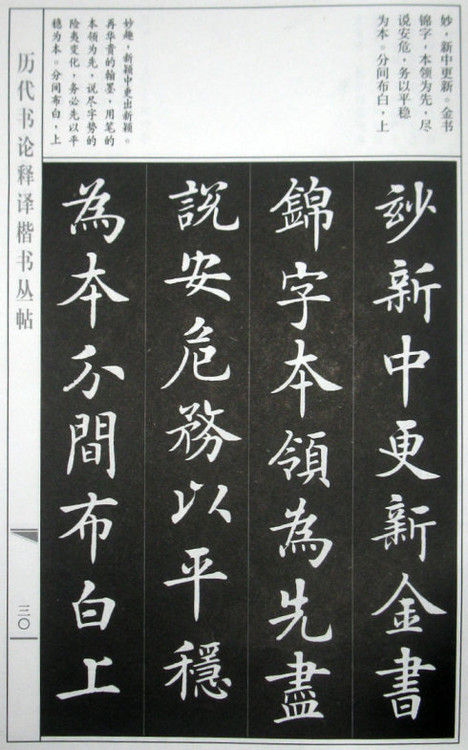 妙，新中更新。金书
锦字，本领为先，尽
说安危，务以平稳
为本。分间布白，上
妙趣，新颖中更出新颖。
再华贵的翰墨，用笔的
本领为先，说尽字势的
险夷变化，务必先以平
稳为本。分间布白，上
玅新中更新金書
錦字本領為先盡
説安危務以平穩
為本分間布白上
历代书论释译楷书丛帖
三〇